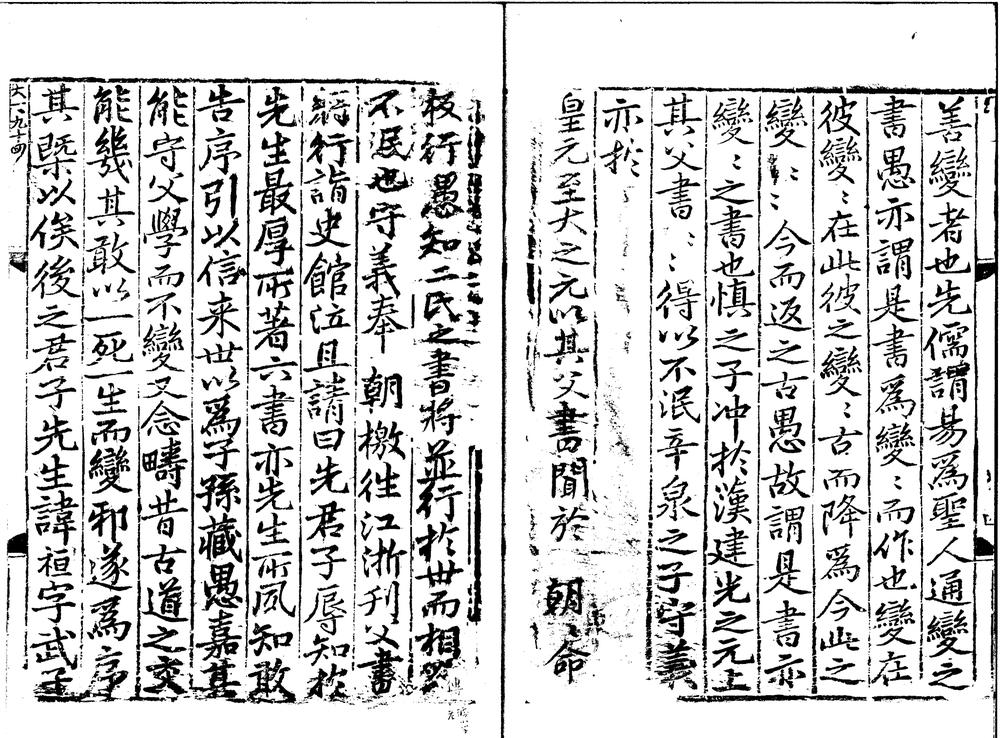 善變者也先儒謂易爲聖人通變之
書愚亦謂是書爲變〻而作也變在
彼變〻在此彼之變〻古而降爲今此之
變〻〻今而返之古愚故謂是書亦
變〻之書也慎之子冲於漢建光之元上
其父書〻得以不泯辛泉之子守義
亦於
皇元至大之元以其父書聞於　朝〻命
板行愚知二氏之書將並行於世而相
不泯也守義奉　朝檄徃江浙刋父書
將行詣史館泣且請曰先君子辱知於
先生最厚所著六書亦先生所夙知敢
告序引以信来世以爲子孫藏愚嘉其
能守父學而不變又念疇昔古道之交
能幾其敢以一死一生而變邪遂爲序
其槩以俟後之君子先生諱桓字武子